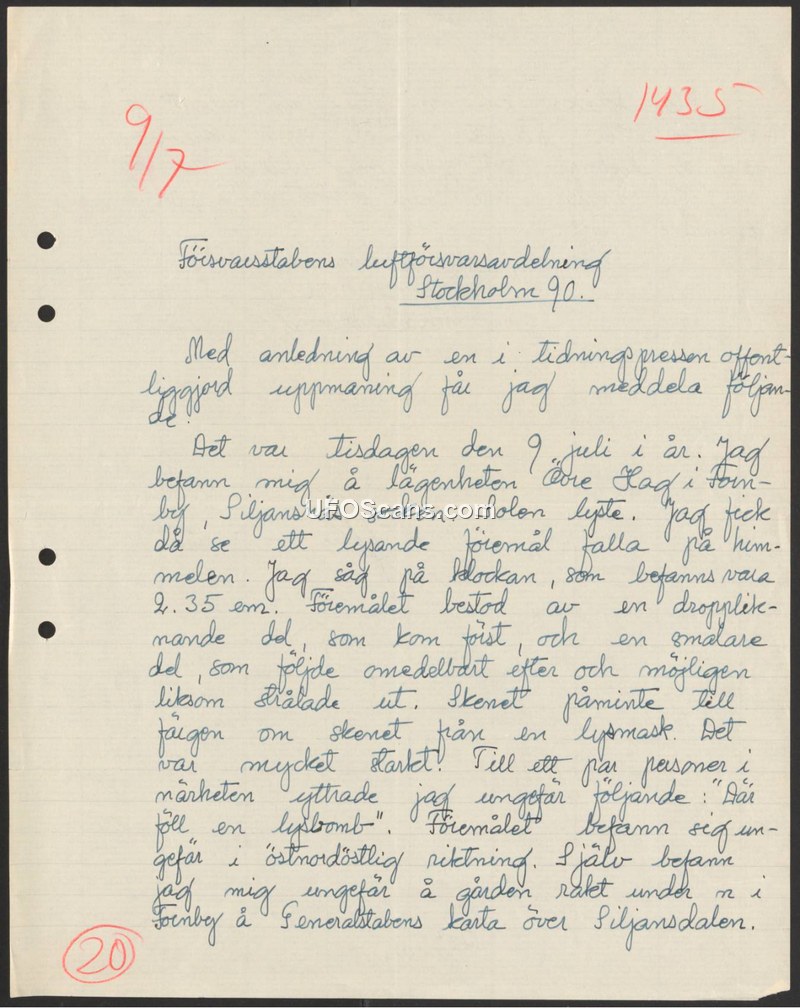 9/7
1435
Försvarsstabens luftförsvarsavdelning
Stockholm 90.
Med anledning av en i tidningspressen offent-
liggjord uppmaning får jag meddela följan-
de:
Det var tisdagen den 9 juli i år. Jag
befann mig å lägenheten Övre Hag i Forn-
by, Siljansnäs socken. Solen lyste. Jag fick
då se ett lysande föremål falla på him-
melen. Jag såg på klockan, som befanns vara
2.35 em. Föremålet bestod av en dropplik-
nande del, som kom först, och en smalare
del, som följde omedelbart efter och möjligen
liksom strålade ut. Skenet påminte till
färgen om skenet från en lysmask. Det
var mycket starkt. Till ett par personer i
närheten yttrade jag ungefär följande: "Där
föll en lysbomb". Föremålet befann sig un-
gefär i östnordöstlig riktning. Själv befann
jag mig ungefär å gården rakt under n i
Fornby å Generalstabens karta över Siljansdalen.
20
UFOScans.com